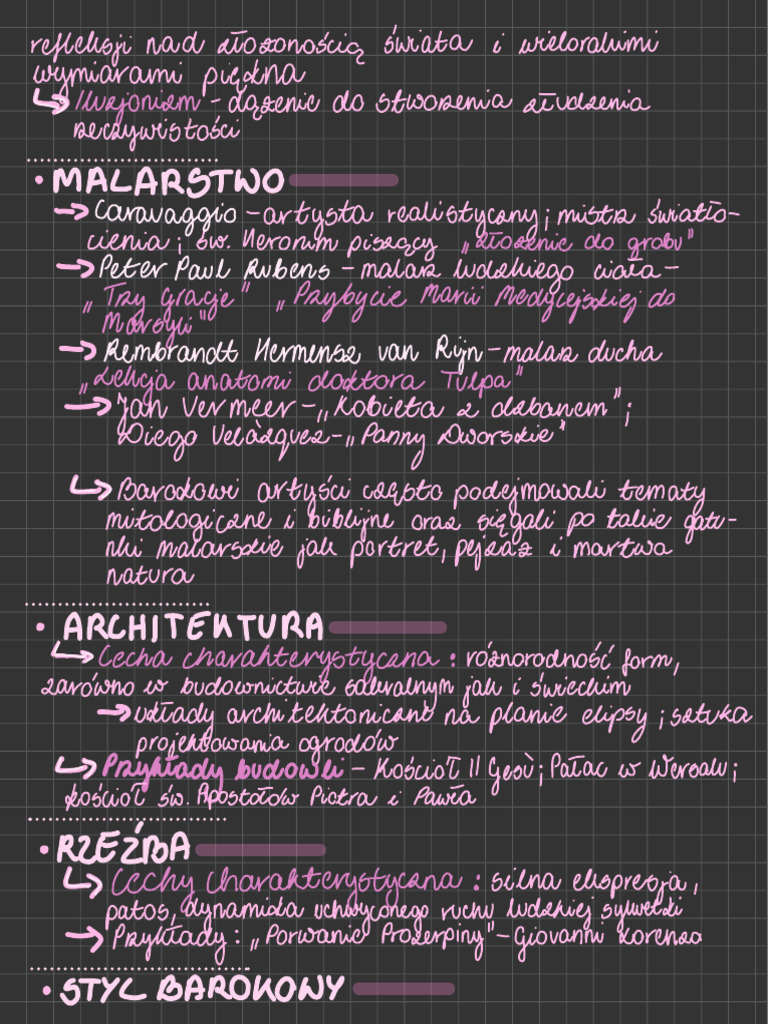 refleksji nad złożonością świata i wielorakimi
wymiarami piękna
↳ Iluzjonizm - dążenie do stworzenia złudzenia
rzeczywistości
• MALARSTWO
→ Caravaggio - artysta realistyczny; mistrz światło-
cienia; św. Heronim piszący „złożenie do grobu"
→ Peter Paul Rubens - malarz ludzkiego ciała -
„Trzy Gracje" „Przybycie Marii Medycejskiej do
Marsylii"
→ Rembrandt Hermensz van Rijn - malarz ducha
„Lekcja anatomi doktora Tulpa"
→ Jan Vermeer - „Kobieta z dzbanem";
Diego Velàzquez - „Panny Dworskie"
↳ Barokowi artyści często podejmowali tematy
mitologiczne i biblijne oraz sięgali po takie gatu-
nki malarskie jak portret, pejzaż i martwa
natura
• ARCHITEKTURA
↳ Cecha charakterystyczna: różnorodność form,
zarówno w budownictwie sakralnym jak i świeckim
→ układy architektoniczni na planie elipsy; sztuka
projektowania ogrodów
↳ Przykłady budowli - Kościół Il Gesù; Pałac w Wersalu;
kościół św. Apostołów Piotra i Pawła
• RZEŹBA
↳ Cechy charakterystyczna: silna ekspresja,
patos, dynamika uchwyconego ruchu ludzkiej sylwetki
→ Przykłady: „Porwanie Prozerpiny" - Giovanni Lorenzo
• STYL BAROKOWY